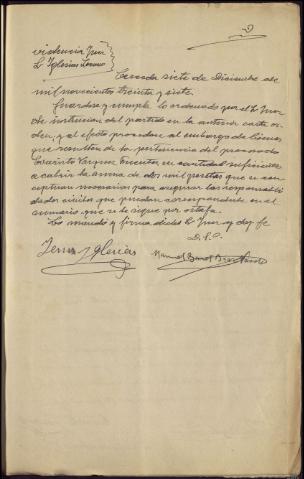 Providencia Juez
Sr Iglesias Lorenzo
Cerceda siete de Diciembre de
mil novecientos treinta y siete.
Guardese y cumplase lo ordenado por el Sr Juez
de instruccion del partido en la anterior carta or-
den, y al efecto procedase al embargo de bienes
que resulten de la pertenencia del procesado
Vazquez en cantidad suficiente
a cubrir la suma de dos mil pesetas que se con-
ceptuan necesarias para asegurar las responsabili-
dades civiles que puedan corresponderle en el
sumario que se le sigue por estafa.
Lo mando y firma dicho Sr Juez doy fe
Iglesias
Manuel